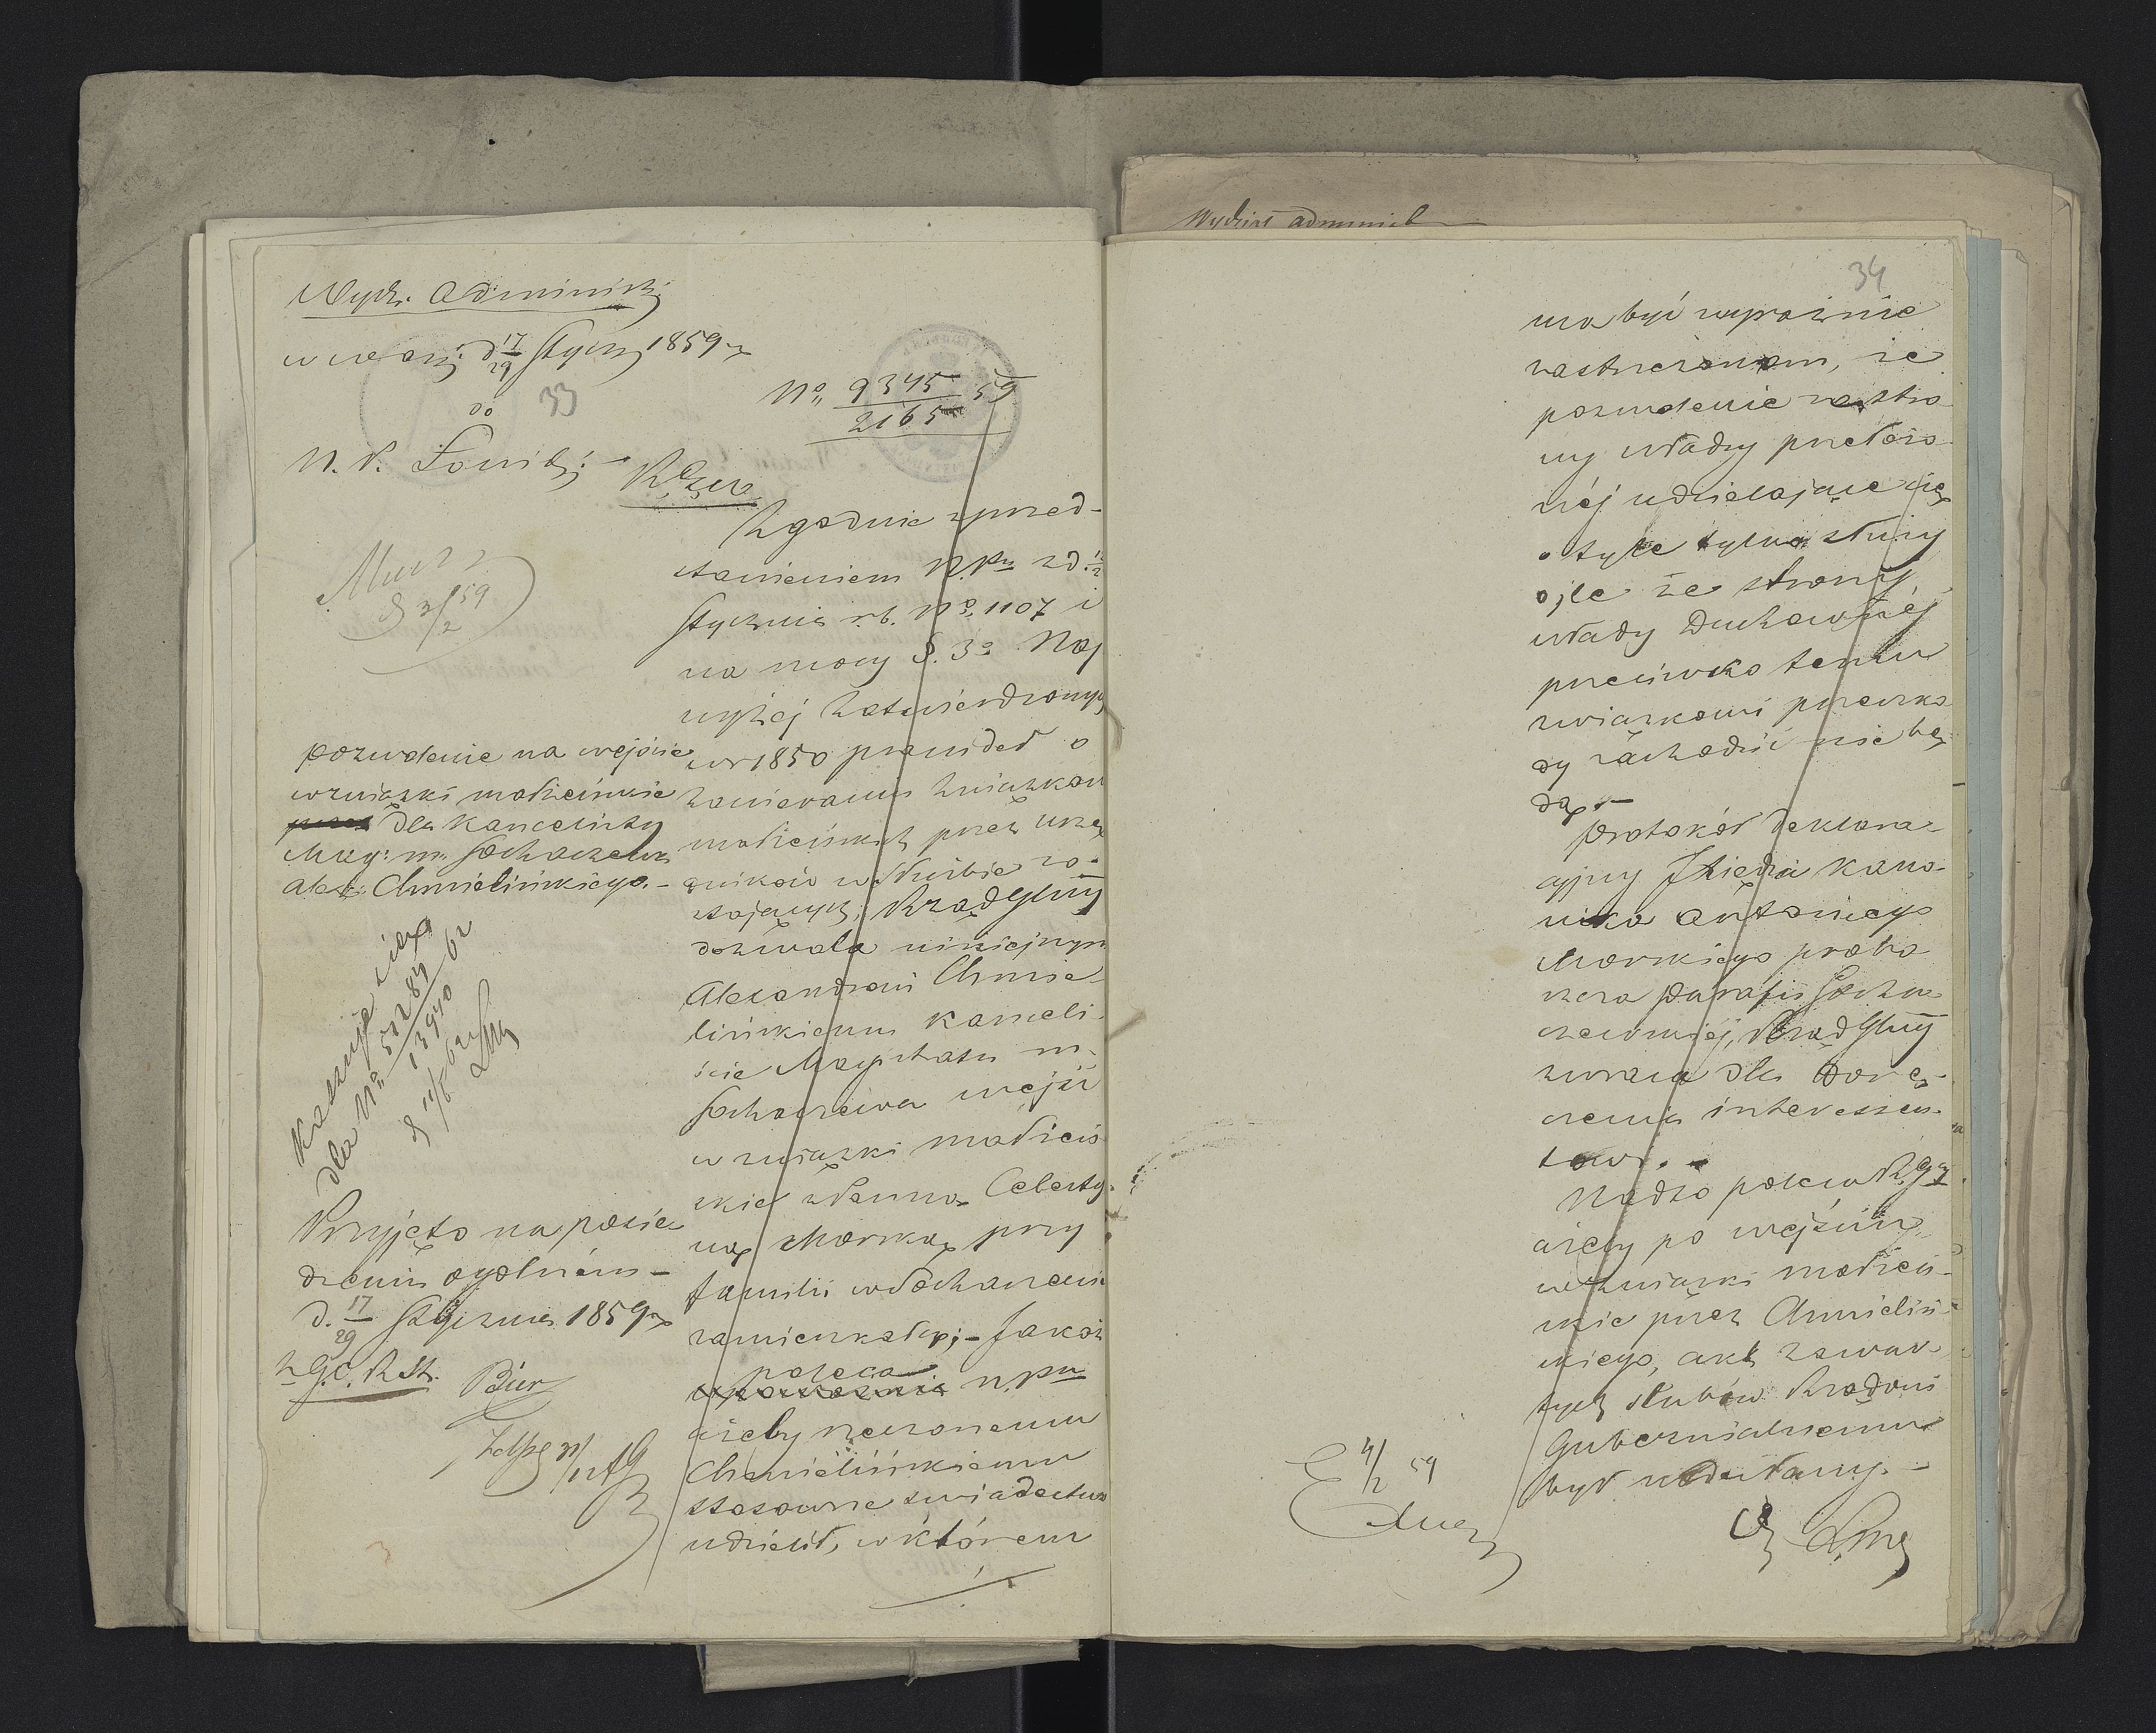 Wydz. Administ:
w Warsz: d 17/29 Stycz 1859 r
33
do
N. P. Łowick:
No 9345/2165 59
Mucz
d 3/2 59
Zgodnie z przed-
stawieniem N. Pu z d.
Stycznia r.b. No 1107 i
na mocy §. 3o Naj
wyżej Zatwierdzonych
w r 1850 prawideł o
zawieraniu związków
małżeńskich przez urzę
dników w służbie zo-
stających, Rząd Glny
dozwala ninieyszym
Alexandrowi Chmie-
lińskiemu Kanceli-
ście Magistratu m.
Sochaczewa wejść
w związki małżeń
skie z Panną Celesty-
ną Morską przy
familii w Sochaczewie
zamieszkałą; - Jakoż
poleca
upoważnia N. Pu
ażeby rzeczonemu
Chmielińskiemu
stosowne świadectwo
udzielił, w którem
pozwolenie na wejście
w związki małżeńskie
przez dla Kancelisty
Mag: m. Sochaczewa
Alex: Chmielińskiego. -
Kassuje się
dla No 51284/13940 62
Przyjęto na posie
dzeniu ogólném -
d. 17/29 Stycznia 1859 r
Z G. C. R. St.
Wydział administ
34
ma być wyraźnie
zastrzeżonem, że
pozwolenie ze stro
ny władzy przełożo
néj udzielające się
o tyle tylko służy
o ile ze strony
władzy Duchownéj
przeciwko temu
związkowi przeszko
dy zachodzić nie bę
dą. -
Protokół deklara-
cyjny Xiędza Kano-
nika Antoniego
Morskiego probo
szcza Parafii Socha
czewskiéj, Rząd Glny
zwraca dla Dorę-
czenia interessen-
towi. -
Nadto poleca R. Gy
ażeby po wejściu
w związki małżeń-
skie przez Chmieliń
skiego, akt zawar-
tych ślubów Rządowi
Gubernialnemu
był nadesłany. -
4/2 59